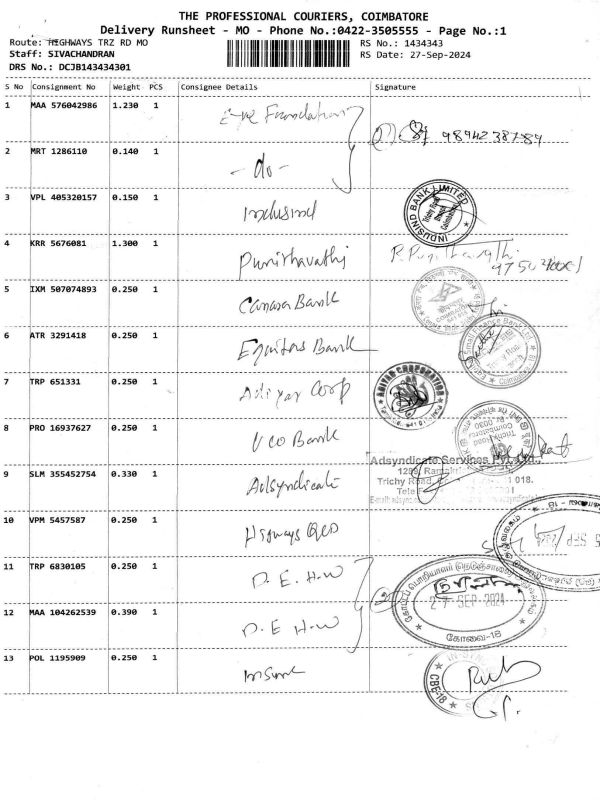 THE PROFESSIONAL COURIERS, COIMBATORE
Delivery Runsheet - MO - Phone No.:0422-3505555 - Page No.:1
Route: HIGHWAYS TRZ RD MO
RS No.: 1434343
Staff: SIVACHANDRAN
RS Date: 27-Sep-2024
DRS No.: DCJB143434301
S No Consignment No Weight PCS Consignee Details Signature
1 MAA 576042986 1.230 1 Foundation
2 MRT 1286110 0.140 1 - do -
3 VPL 405320157 0.150 1 Indusind
INDUSIND BANK LIMITED
Trichy Road
Branch
Coimbatore
4 KRR 5676081 1.300 1 Punithavathi
5 IXM 507074893 0.250 1 Canara Bank
6 ATR 3291418 0.250 1 Equitas Bank
Small Finance Bank Ltd
7 TRP 651331 0.250 1 Adiyar Corp
CORPORATION
8 PRO 16937627 0.250 1 UCO Bank
Trichy Road
Coimbatore
Adsyndicate Services
9 SLM 355452754 0.330 1 Adsyndicate
Trichy Road
10 VPM 5457587 0.250 1
11 TRP 6830105 0.250 1 D. E. H. W
27 SEP 2024
கோவை-18
12 MAA 104262539 0.390 1 D. E H. W
13 POL 1195909 0.250 1
CBE-18